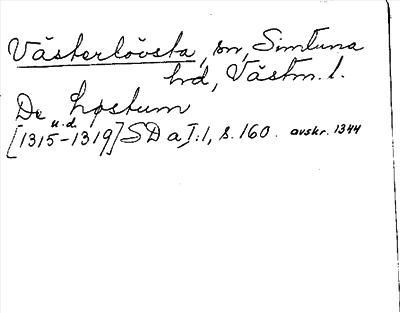 Västerlövsta, sn, Simtuna
hd, Västm. l.
De Løstum
u.d.
[1315-1319] SD a I:1, s. 160. avskr. 1344